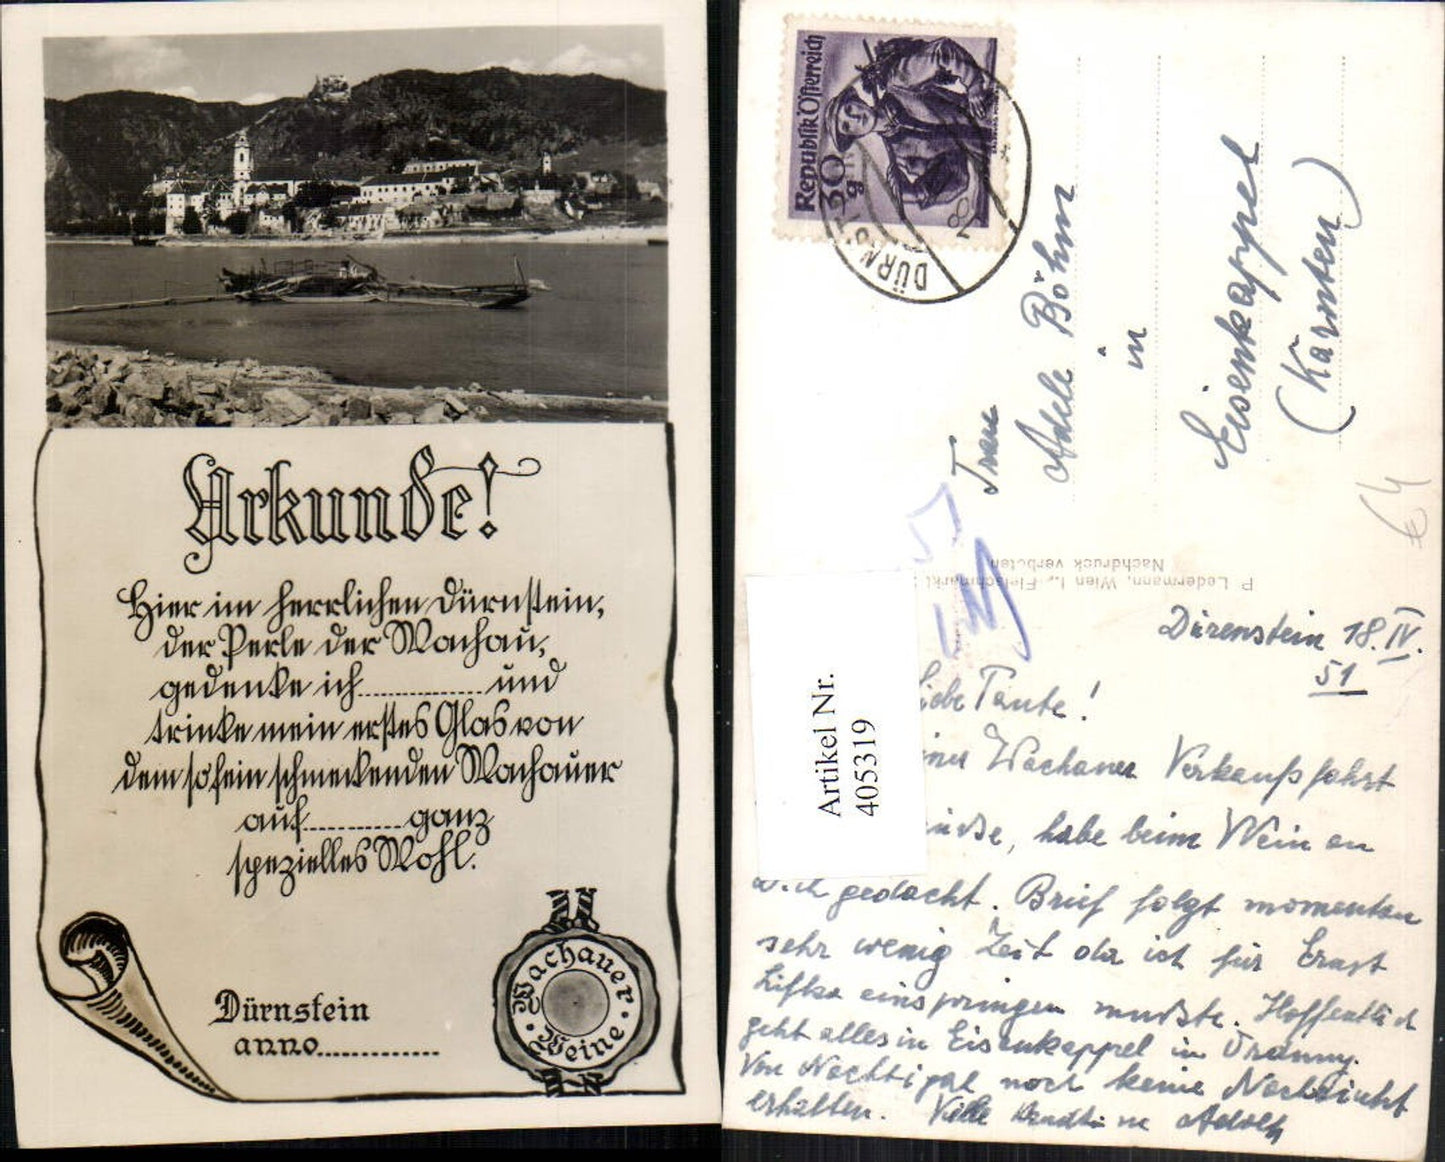 Urkunde!
Hier im herrlichen Dürnstein,
der Perle der Wachau,
gedenke ich............und
trinke mein erstes Glas von
dem so fein schmeckenden Wachauer
auf..........ganz
spezielles Wohl.
Dürnstein
anno............
Wachauer
Weine
Republik Österreich
30 g
DÜRN
Frau
Adele Böhm
in
Eisenkappel
(Kärnten)
P. Ledermann, Wien I., Fleischmarkt
Nachdruck verboten
Artikel Nr.
405319
Dürenstein 18.IV.
51
Liebe Tante!
Wachauer Verkaufsfahrt
habe beim Wein an
Dich gedacht. Brief folgt momentan
sehr wenig Zeit da ich für Ernst
einspringen mußte. Hoffentlich
geht alles in Eisenkappel in Ordnung.
Von noch keine Nachricht
erhalten. Viele Adolf